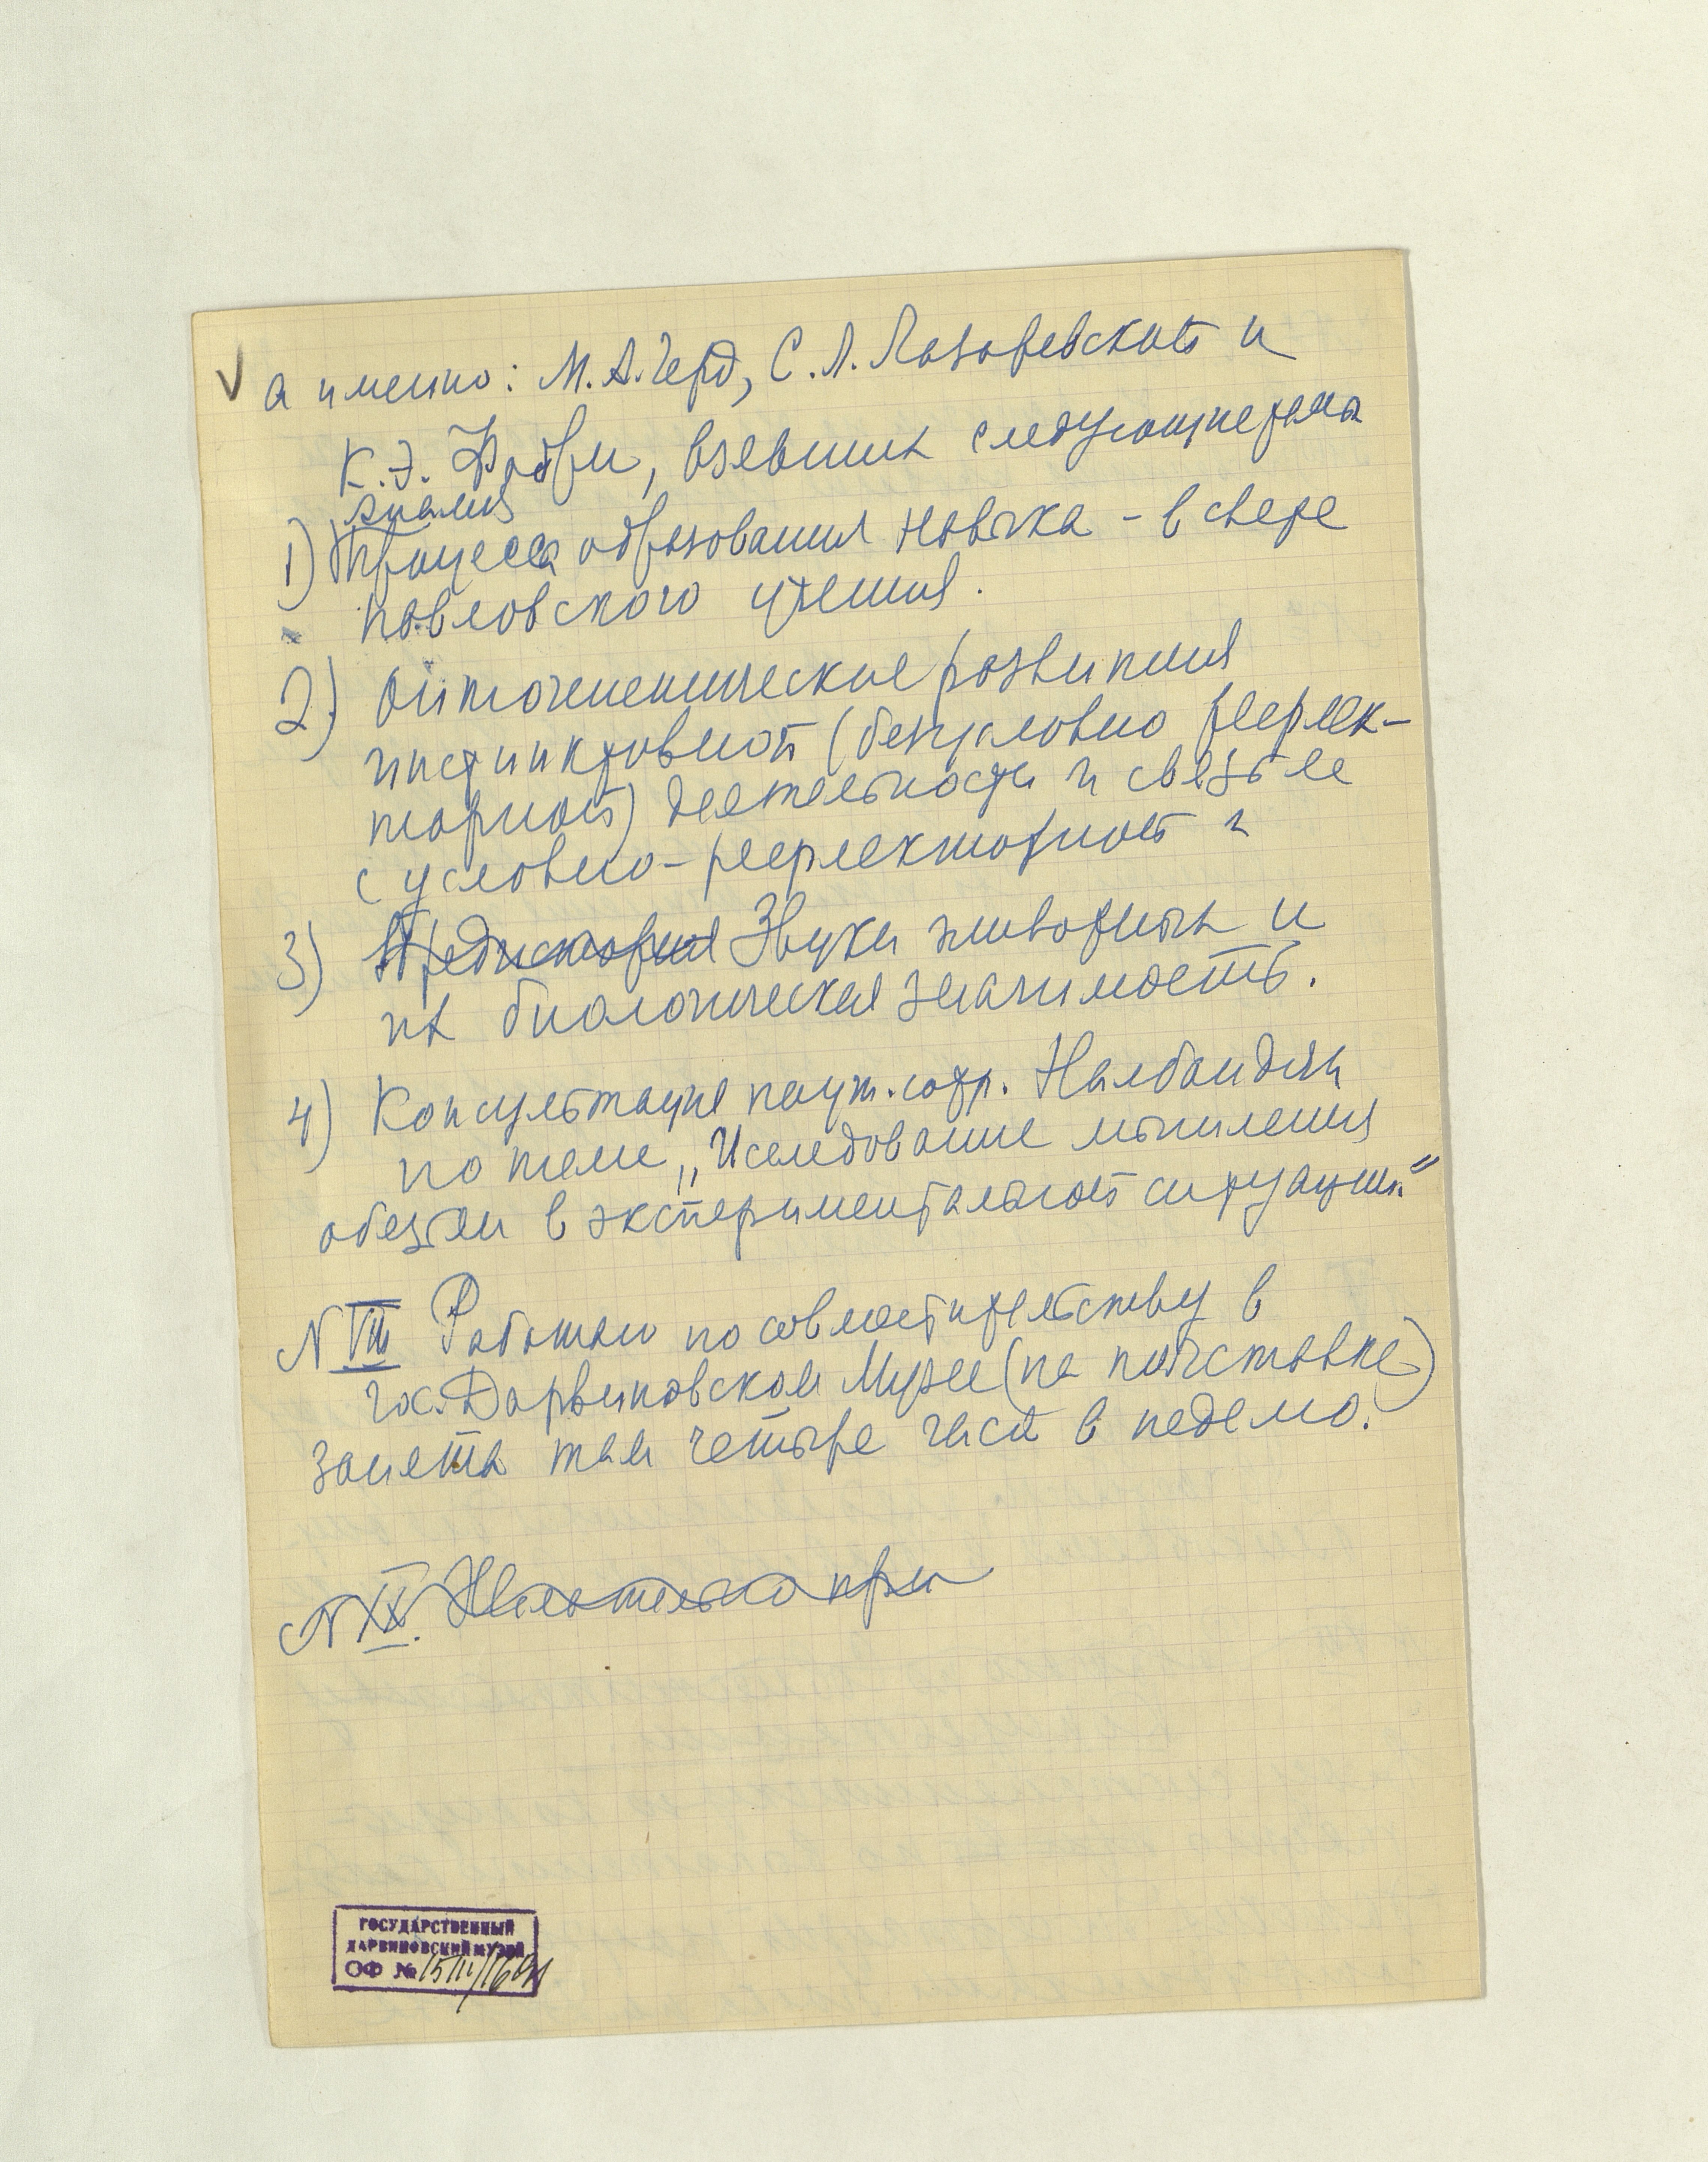 √ а именно: М.А. Герд, С.Л. Лазаревской и
К.Э. Фабри, взявших следующие темы
анализ
1) Процесса образования навыка – в свете
павловского учения.
2) Онтогенетические развития
инстинктовной (безусловно рефлек-
торной) деятельности и связь ее
с условно-рефлекторной
3) Предистория Звуки животных и
их биологическая значимость.
4) Консультация научн. сотр. Налбандян
по теме „Иследование мышления
обезьян в экспериментальной ситуации"
N VIII Работаю по совместительству в
Гос. Дарвиновском Музее (на полставке)
занята там четыре часа в неделю.
N IX. Желательно при
ГОСУДАРСТВЕННЫЙ
ДАРВИНОВСКИЙ МУЗЕЙ
ОФ №